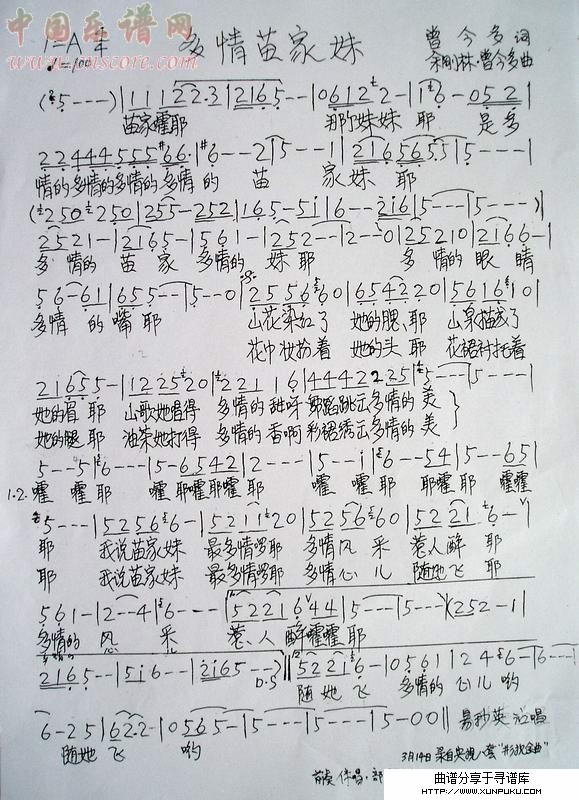 中国乐谱网
www.cnscore.com
1=A 4/4 多情苗家妹 曾今多词
♩=100 余刚林·曾今多曲
(5---)|111 22·3|2165--|0612 2-|16-0521|
苗家嚯耶 那儿妹妹 耶 是多
22444555#66·|#6--2|5--1|2165655|5---|
情的多情的多情的多情的 苗 家妹 耶
(250 250|255-252|165-5i|6--2i6|5---|5---)|
2521-|2165-|561-|252--|2--0|25210|2166-|
多情的 苗家 多情的 妹耶 多情的眼睛
56-61|655--|5--0|255660|654220|561610|
多情 的嘴耶 山花染红了 她的腮、耶 山泉描成了
花巾妆扮着 她的头 耶 花裙衬托着
21655-|1225 20|221 16|44422235|5---|5---|
她的眉 耶 山歌她唱得 多情的甜呀 舞蹈跳出多情的美
她的腿 耶 油茶她打得 多情的香啊 彩裙绣出多情的美
5--5|6---|5-6542|2---|5--i|6--54|5--65|
1.2. 嚯 嚯耶 嚯耶嚯耶嚯耶 嚯 嚯耶 耶嚯耶 嚯嚯
5---|52566-|521120|525660|5221·6-|
耶 我说苗家妹 最多情啰耶 多情风采 惹人醉 耶
耶 我说苗家妹 最多情啰耶 多情心儿 随她飞 耶
561-|2--4|6---|5221644|5---|5---|(252-1|
多情的 风 采 惹人醉嚯嚯耶
2165--|5i6--|2i65--)|5221 6-|0561|246-|6--|
D.S 随她飞 多情的 心儿 哟
6-25|622·-|0565-|5---|5---|5-00‖ 易秒英 演唱
随她飞 哟
3月14日 录自央视
曲谱分享于寻谱库
HTTP://WWW.XUNPUKU.COM